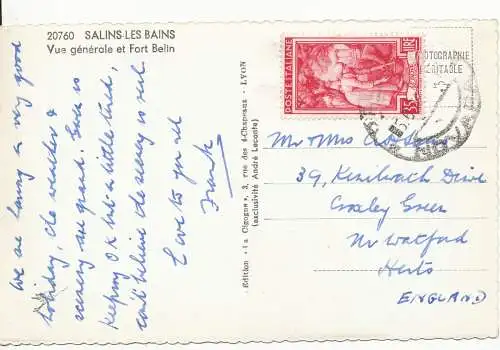 20760 SALINS-LES BAINS
Vue générale et Fort Belin
We are having a very good
holiday, the weather &
scenery are grand.
keeping OK but a little tired,
can't believe the scenery is real.
Love to you all
Frank
Edition "la Cigogne", 3, rue des 4-Chapeaux - LYON
(exclusivité André Leconte)
POSTE ITALIANE
LIRE
35
PHOTOGRAPHIE
VÉRITABLE
NOVARA
Mr & Mrs
39, Kenilworth Drive
Croxley Green
Nr Watford
Herts
ENGLAND